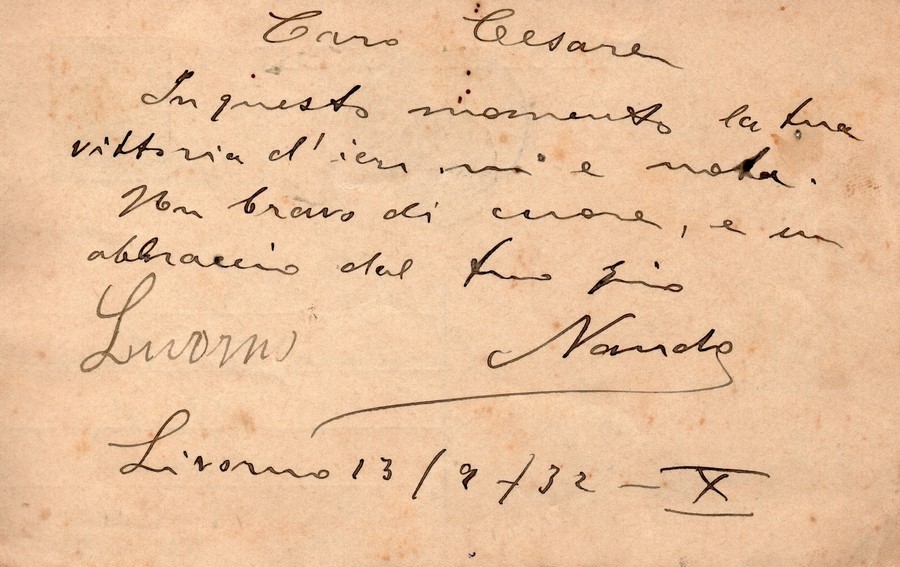 Caro Cesare
In questo momento la tua
vittoria d'ieri mi è nota.
Un bravo di cuore, e un
abbraccio dal tuo zio
Livorno Nando
Livorno 13/9/32 - X